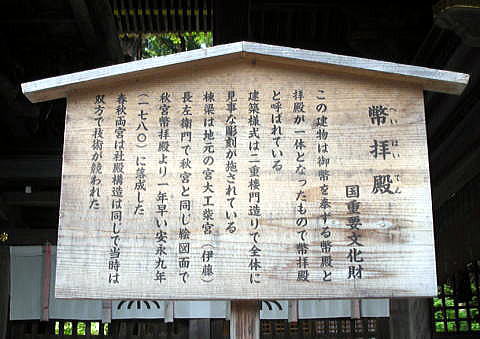 幣拝殿
へいはいでん
国重要文化財
この建物は御幣を奉ずる幣殿と
拝殿が一体となったもので幣拝殿
と呼ばれている
建築様式は二重楼門造りで全体に
見事な彫刻が施されている
棟梁は地元の宮大工柴宮(伊藤)
長左衛門で秋宮と同じ絵図面で
秋宮幣拝殿より一年早い安永九年
(一七八〇)に落成した
春秋両宮は社殿構造は同じで当時は
双方で技術が競われた